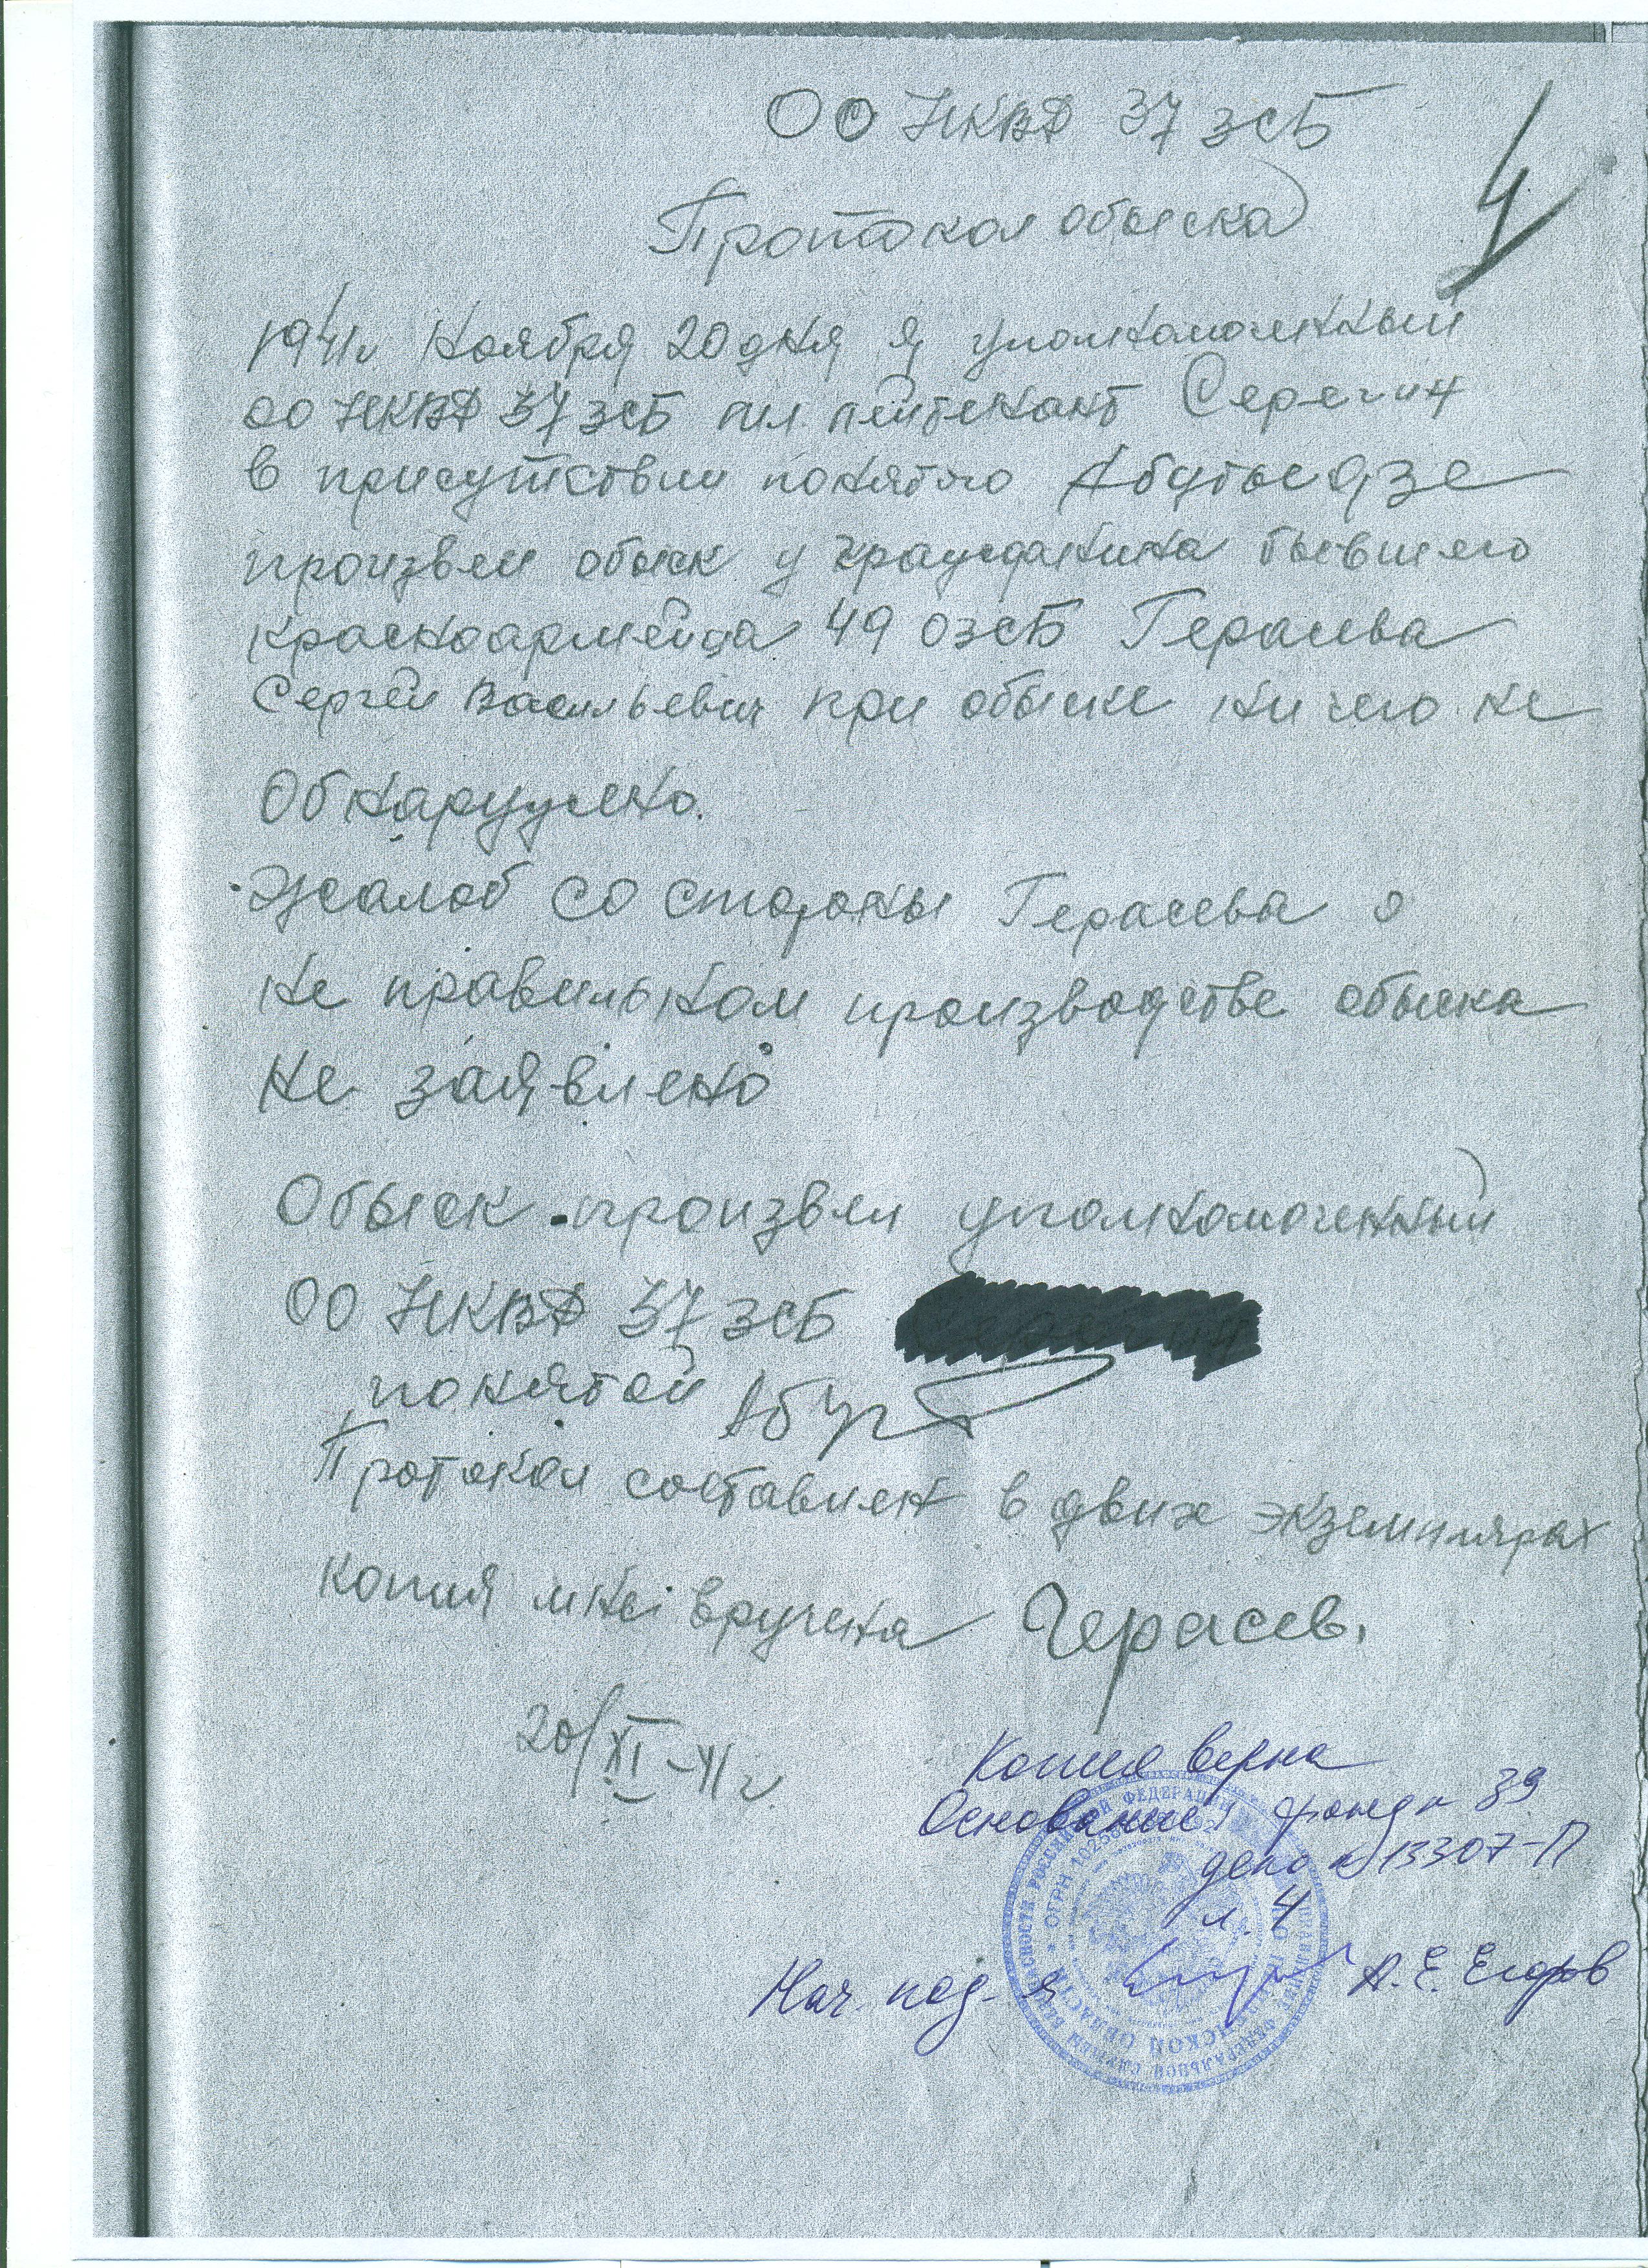 ОО НКВД 37 ЗСБ
4
Протокол обыска
1941 г. Ноября 20 дня я уполномоченный
ОО НКВД 37 ЗСБ мл. лейтенант Серегин
в присутствии понятого
произвел обыск у гражданина бывшего
красноармейца 49 ОЗСБ Герасева
Сергей Васильевич при обыске ни чего не
Обнаружено.
Жалоб со стороны Герасева о
не правильном производстве обыска
не заявлено
Обыск произвел уполномоченный
ОО НКВД 37 ЗСБ
понятой
Протокол составлен в двух экземплярах
копия мне вручена Герасев.
20/XI-41 г
Копия верна
Основание: фонд № 39
дело № 13307-П
л. 4
Нач. под-я А.Е. Егоров